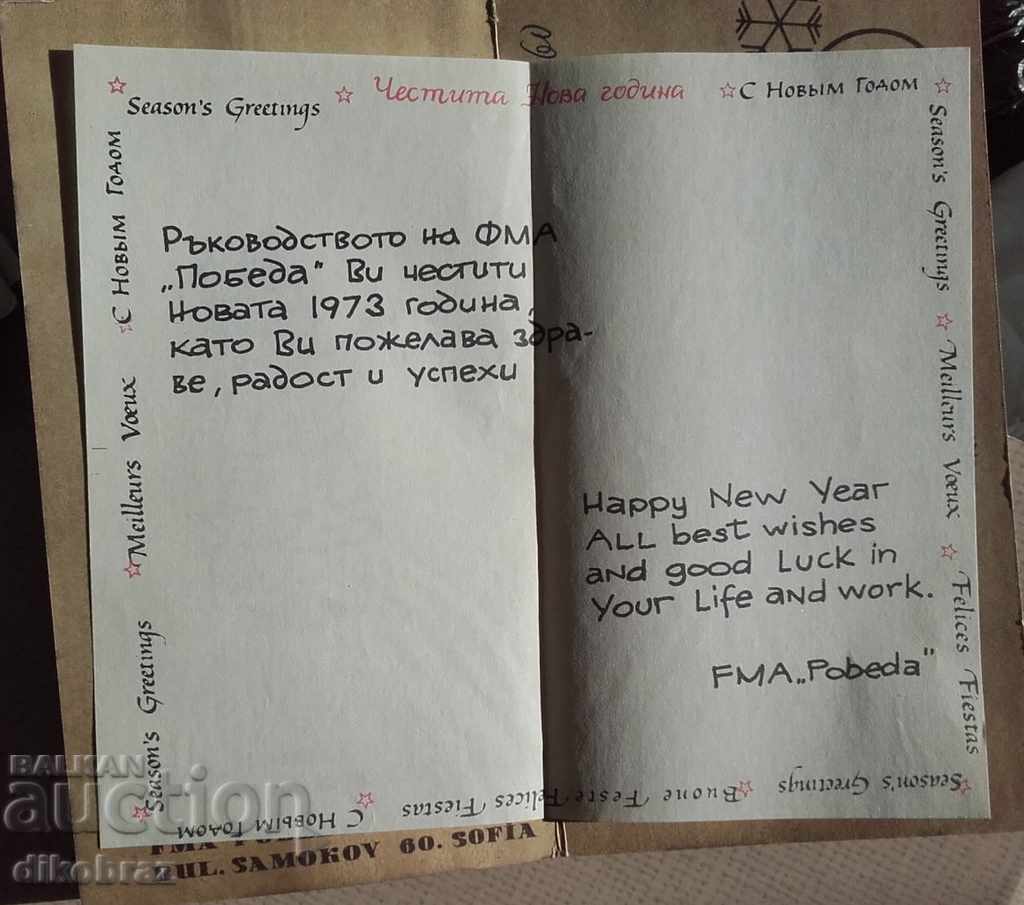 Season's Greetings ☆ Честита Нова година ☆ С Новым Годом ☆
С Новым Годом
Meilleurs Voeux
Season's Greetings
Ръководството на ФМА
„Победа" Ви честити
Новата 1973 година,
като Ви пожелава здра-
ве, радост и успехи
Happy New Year
All best wishes
and good luck in
your life and work.
FMA „Pobeda"
Season's Greetings
Meilleurs Voeux
Felices Fiestas
Season's Greetings
Buone Feste
Felices Fiestas
С Новым Годом
FMA
BUL. SAMOKOV 60. SOFIA
BALKAN
auction
dikobraz